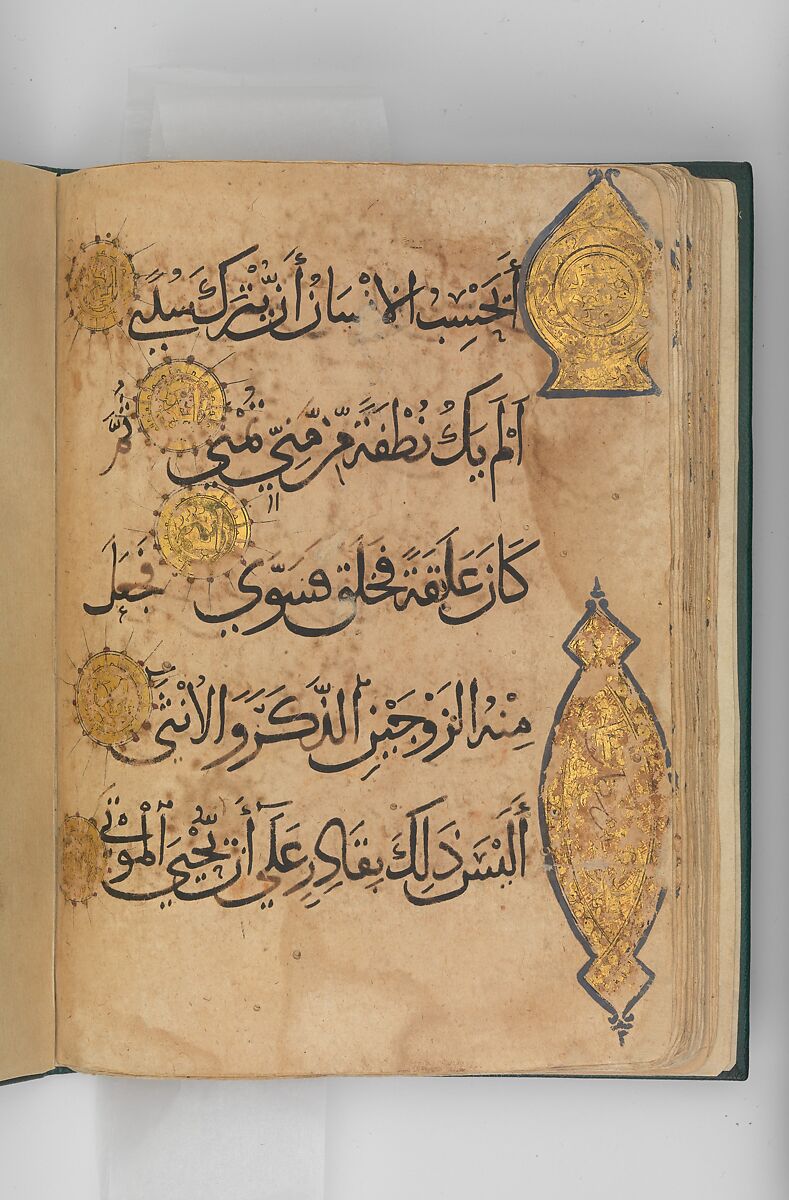 أَيَحْسِبُ الاِنْسَانُ أَنْ يُتْرَكَ سُدًي
اَلَمْ يَكُ نُطْفَةً مِّنْ مَّنِيٍّ تُمْنٰي ثُمَّ
كَانَ عَلَقَةً فَخَلَقَ فَسَوّٰي فَجَعَلَ
مِنْهُ الزَّوْجَيْنِ الذَّكَرَ وَالْاُنْثٰي
أَلَيْسَ ذٰلِكَ بِقَادِرٍ عَلٰٓي أَنْ يُّحْيِيَ الْمَوْتٰي